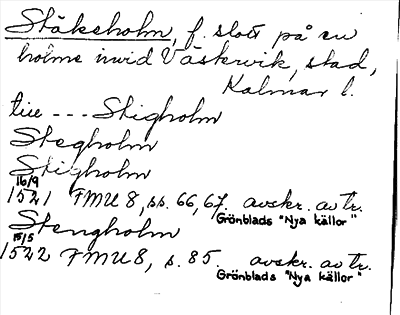 Stäkeholm, f. slott på en
holme invid Västervik, stad,
Kalmar l.
tile --- Stigholm
Stegholm
Stigholm
16/9
1521 FMU 8, ss. 66, 67. avskr. av tr.
Grönblads "Nya källor"
Stengholm
15/5
1522 FMU 8, s. 85. avskr. av tr.
Grönblads "Nya källor"